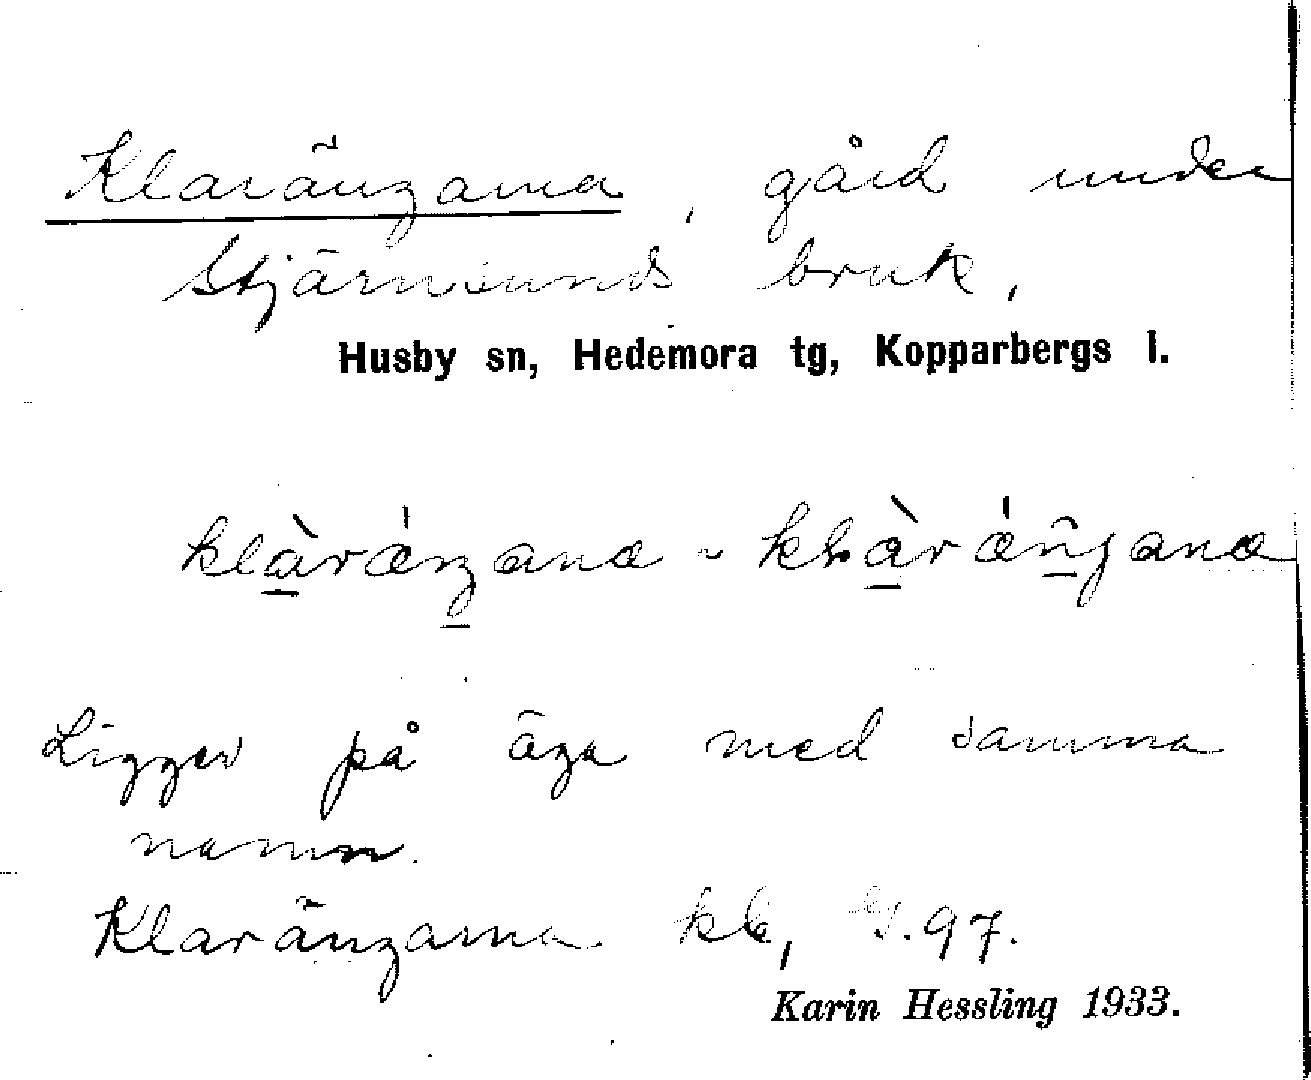 Klarängarna, gård under
Stjärnsunds bruk,
Husby sn, Hedemora tg, Kopparbergs l.
klàrǽngana ~ klàrǽngana
Ligger på äga med samma
namn.
Klarängarna kb, 97.
Karin Hessling 1933.